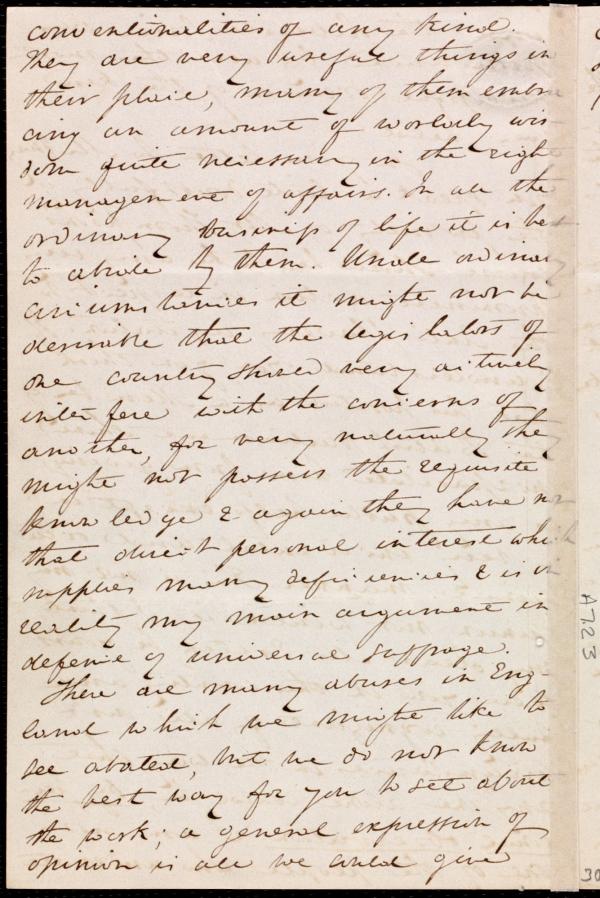 conventionalities of any kind.
They are very useful things in
their place, many of them embra
cing an amount of worldly wis
dom quite necessary in the right
management of affairs. In all the
ordinary business of life it is best
to abide by them. Under ordinary
circumstances it might not be
desirable that the legislators of
one country should very actively
interfere with the concerns of
another, for very naturally they
might not possess the requisite
knowledge & again they have not
that direct personal interest which
supplies many deficiencies & is in
reality my main argument in
defense of universal suffrage.
There are many abuses in Eng-
land which we might like to
see abated, but we do not know
the best way for you to set about
the work; a general expression of
opinion is all we could give
A723
30